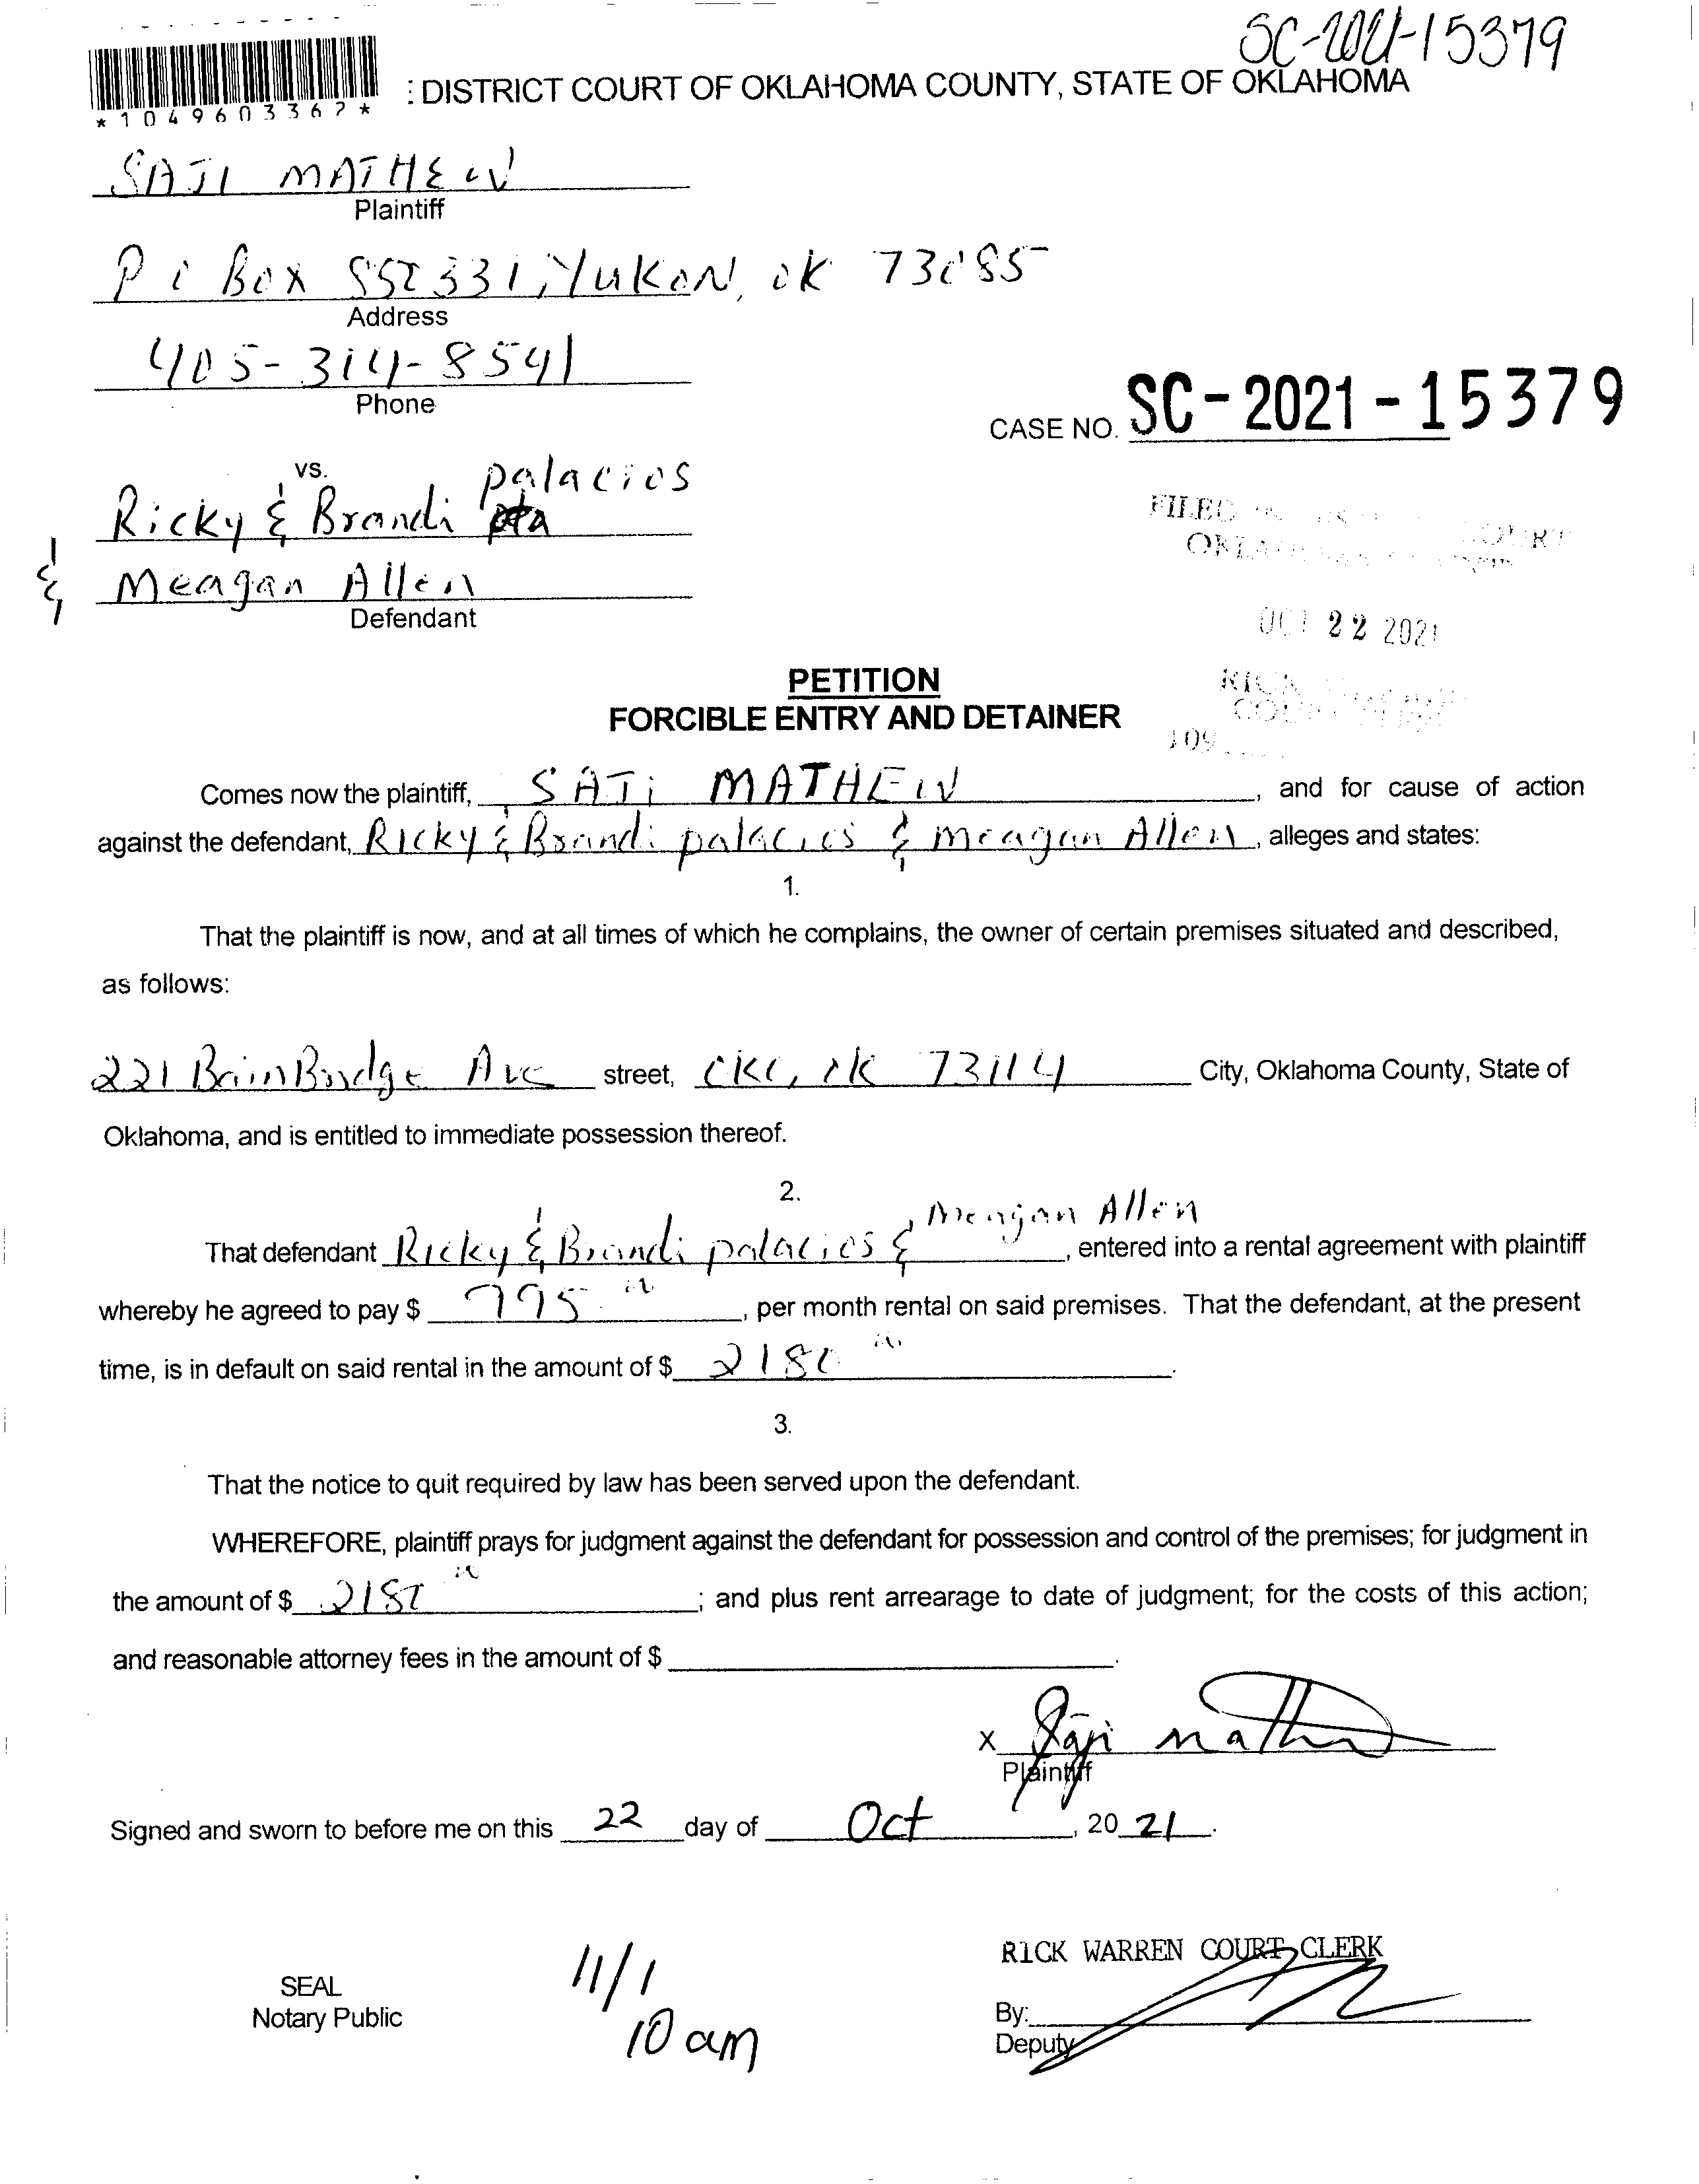 SC-2021-15379
*1049603367*
: DISTRICT COURT OF OKLAHOMA COUNTY, STATE OF OKLAHOMA
SAJI MATHEW
Plaintiff
P O Box 850331, Yukon, OK 73085
Address
405-314-8541
Phone
CASE NO. SC-2021-15379
vs.
palacios
Ricky & Brandi
& Meagan Allen
Defendant
FILED COURT
OCT 22 2021
PETITION
FORCIBLE ENTRY AND DETAINER
109
Comes now the plaintiff, SAJI MATHEW, and for cause of action
against the defendant, Ricky & Brandi palacios & Meagan Allen, alleges and states:
1.
That the plaintiff is now, and at all times of which he complains, the owner of certain premises situated and described,
as follows:
221 BainBridge Ave street, OKC, OK 73114 City, Oklahoma County, State of
Oklahoma, and is entitled to immediate possession thereof.
2.
Meagan Allen
That defendant Ricky & Brandi palacios &, entered into a rental agreement with plaintiff
whereby he agreed to pay $ 795, per month rental on said premises. That the defendant, at the present
time, is in default on said rental in the amount of $ 2180.
3.
That the notice to quit required by law has been served upon the defendant.
WHEREFORE, plaintiff prays for judgment against the defendant for possession and control of the premises; for judgment in
the amount of $ 2180; and plus rent arrearage to date of judgment; for the costs of this action;
and reasonable attorney fees in the amount of $.
X Saji Mathew
Plaintiff
Signed and sworn to before me on this 22 day of Oct, 20 21.
RICK WARREN COURT CLERK
11/1
SEAL
Notary Public
By:
10 am
Deputy